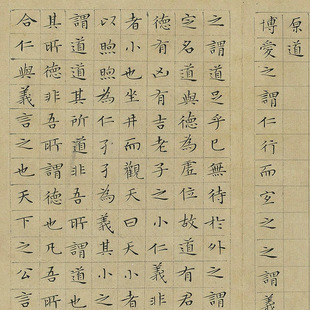 原道
博愛之謂仁行而宜之之謂義
之謂道足乎已無待於外之謂
定名道與德為虛位故道有君
德有凶有吉老子之小仁義非
者小也坐井而觀天曰天小者
以煦煦為仁孑孑為義其小之
謂道道其所道非吾所謂道也
其所德非吾所謂德也凡吾所
合仁與義言之也天下之公言